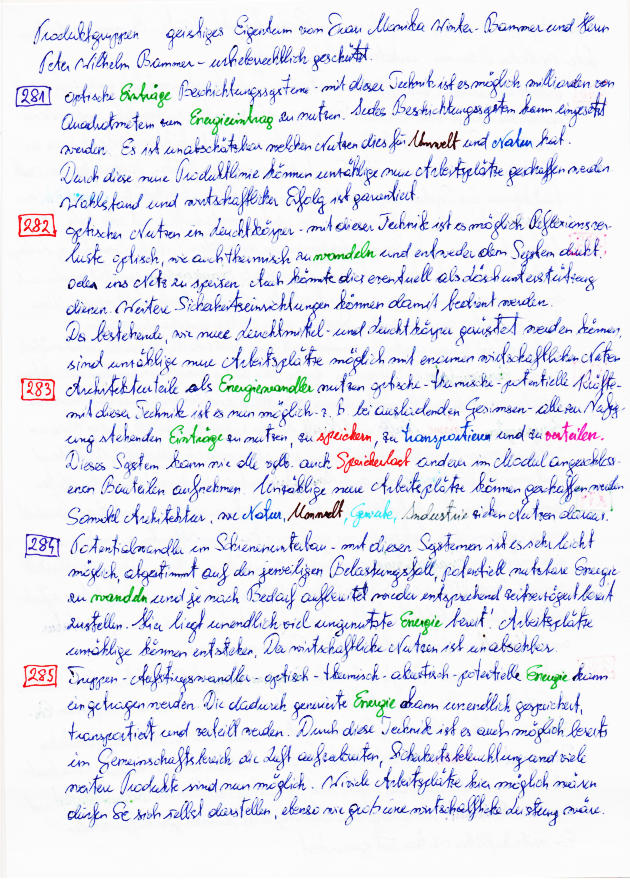 Produktgruppen geistiges Eigentum von Frau Monika Winter-Brammer und Herrn
Peter Wilhelm Brammer - urheberrechtlich geschützt.
281 optische Einträge Beschichtungssysteme - mit dieser Technik ist es möglich milliarden von
Quadratmetern zum Energieeintrag zu nutzen. Jedes Beschichtungssystem kann eingesetzt
werden. Es ist unabschätzbar welchen Nutzen dies für Umwelt und Natur hat.
Durch diese neue Produktlinie können unzählige neue Arbeitsplätze geschaffen werden
Wohlstand und wirtschaftlicher Erfolg ist garantiert
282 optischer Nutzen im Leuchtkörper - mit dieser Technik ist es möglich Reflexionsver-
luste optisch, wie auch thermisch zu wandeln und entweder dem System direkt
oder ins Netz zu speisen. Auch könnte dies eventuell als
dienen. Weitere Sicherheitseinrichtungen können damit betont werden.
Da bestehende, wie neue Leuchtmittel - und Leuchtkörper gerüstet werden können,
sind unzählige neue Arbeitsplätze möglich mit enormen wirtschaftlichen Nutzen
283 Architekturteile als Energiewandler nutzen optische - thermische - potentielle Kräfte -
mit dieser Technik ist es nun möglich - z. b bei ausladenden Gesimsen - alle zur Verfüg-
ung stehenden Einträge zu nutzen, zu speichern, zu transportieren und zu verteilen.
Dieses System kann wie alle auch Speicherlast anderer im Modul angeschloss-
enen Bauteilen aufnehmen. Unzählige neue Arbeitsplätze können geschaffen werden
Sowohl Architektur, wie Natur, Umwelt, Gewerbe, Industrie ziehen Nutzen daraus.
284 Potentialwandler im Schienenunterbau - mit diesen Systemen ist es sehr leicht
möglich, abgestimmt auf den jeweiligen Belastungsfall, potentiell nutzbare Energie
zu wandeln und je nach Bedarf aufbereitet wieder entsprechend zeitverzögert bereit
zustellen. Hier liegt unendlich viel ungenutzte Energie bereit! Arbeitsplätze
unzählige können entstehen. Der wirtschaftliche Nutzen ist unabsehbar.
285 Treppen - Aufstiegswandler - optisch - thermisch - akustisch - potentielle Energie kann
eingetragen werden. Die dadurch generierte Energie kann unendlich gespeichert,
transportiert und verteilt werden. Durch diese Technik ist es auch möglich bereits
im Gemeinschaftsbereich die Luft aufzubereiten, Sicherheitsbeleuchtung und viele
weitere Produkte sind nun möglich. Wieviele Arbeitsplätze hier möglich wären
dürfen Sie sich selbst darstellen, ebenso wie groß eine wirtschaftliche Leistung wäre.